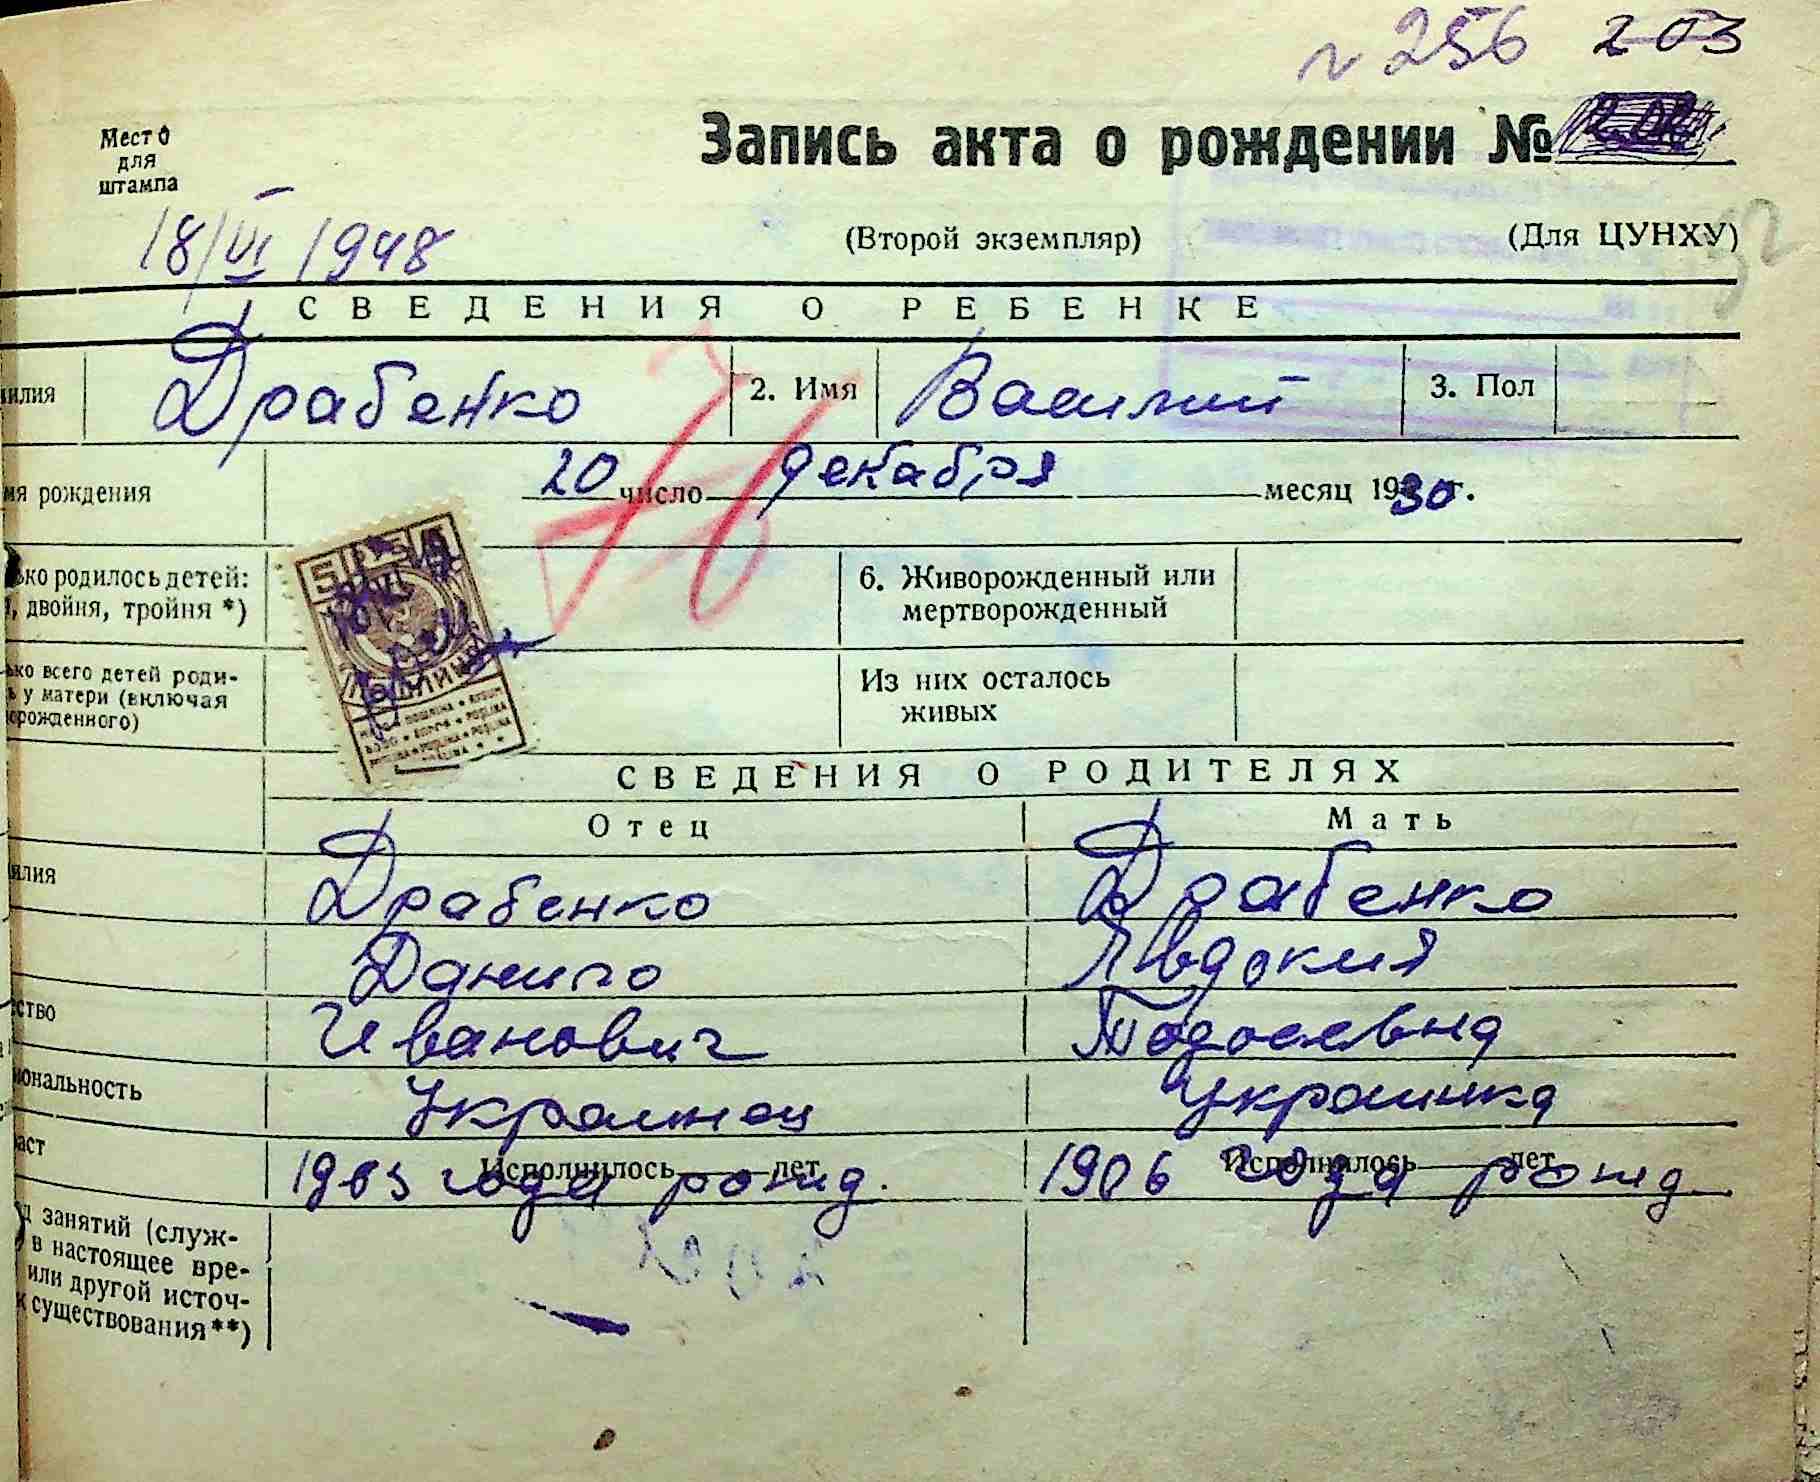 № 256 203
Место
для
штампа
Запись акта о рождении №
18/VI 1948
(Второй экземпляр)
(Для ЦУНХУ)
СВЕДЕНИЯ О РЕБЕНКЕ
илия Драбенко 2. Имя Василий 3. Пол
мя рождения 20 число декабря месяц 1930 г.
ько родилось детей:
, двойня, тройня *)
6. Живорожденный или
мертворожденный
ько всего детей роди-
ь у матери (включая
орожденного)
Из них осталось
живых
СВЕДЕНИЯ О РОДИТЕЛЯХ
Отец Мать
илия Драбенко Драбенко
Данило Явдокия
ество Иванович Тодосевна
иональность Украинец Украинка
аст Исполнилось лет Исполнилось лет
1903 года рожд. 1906 года рожд.
д занятий (служ-
в настоящее вре-
или другой источ-
к существования**)